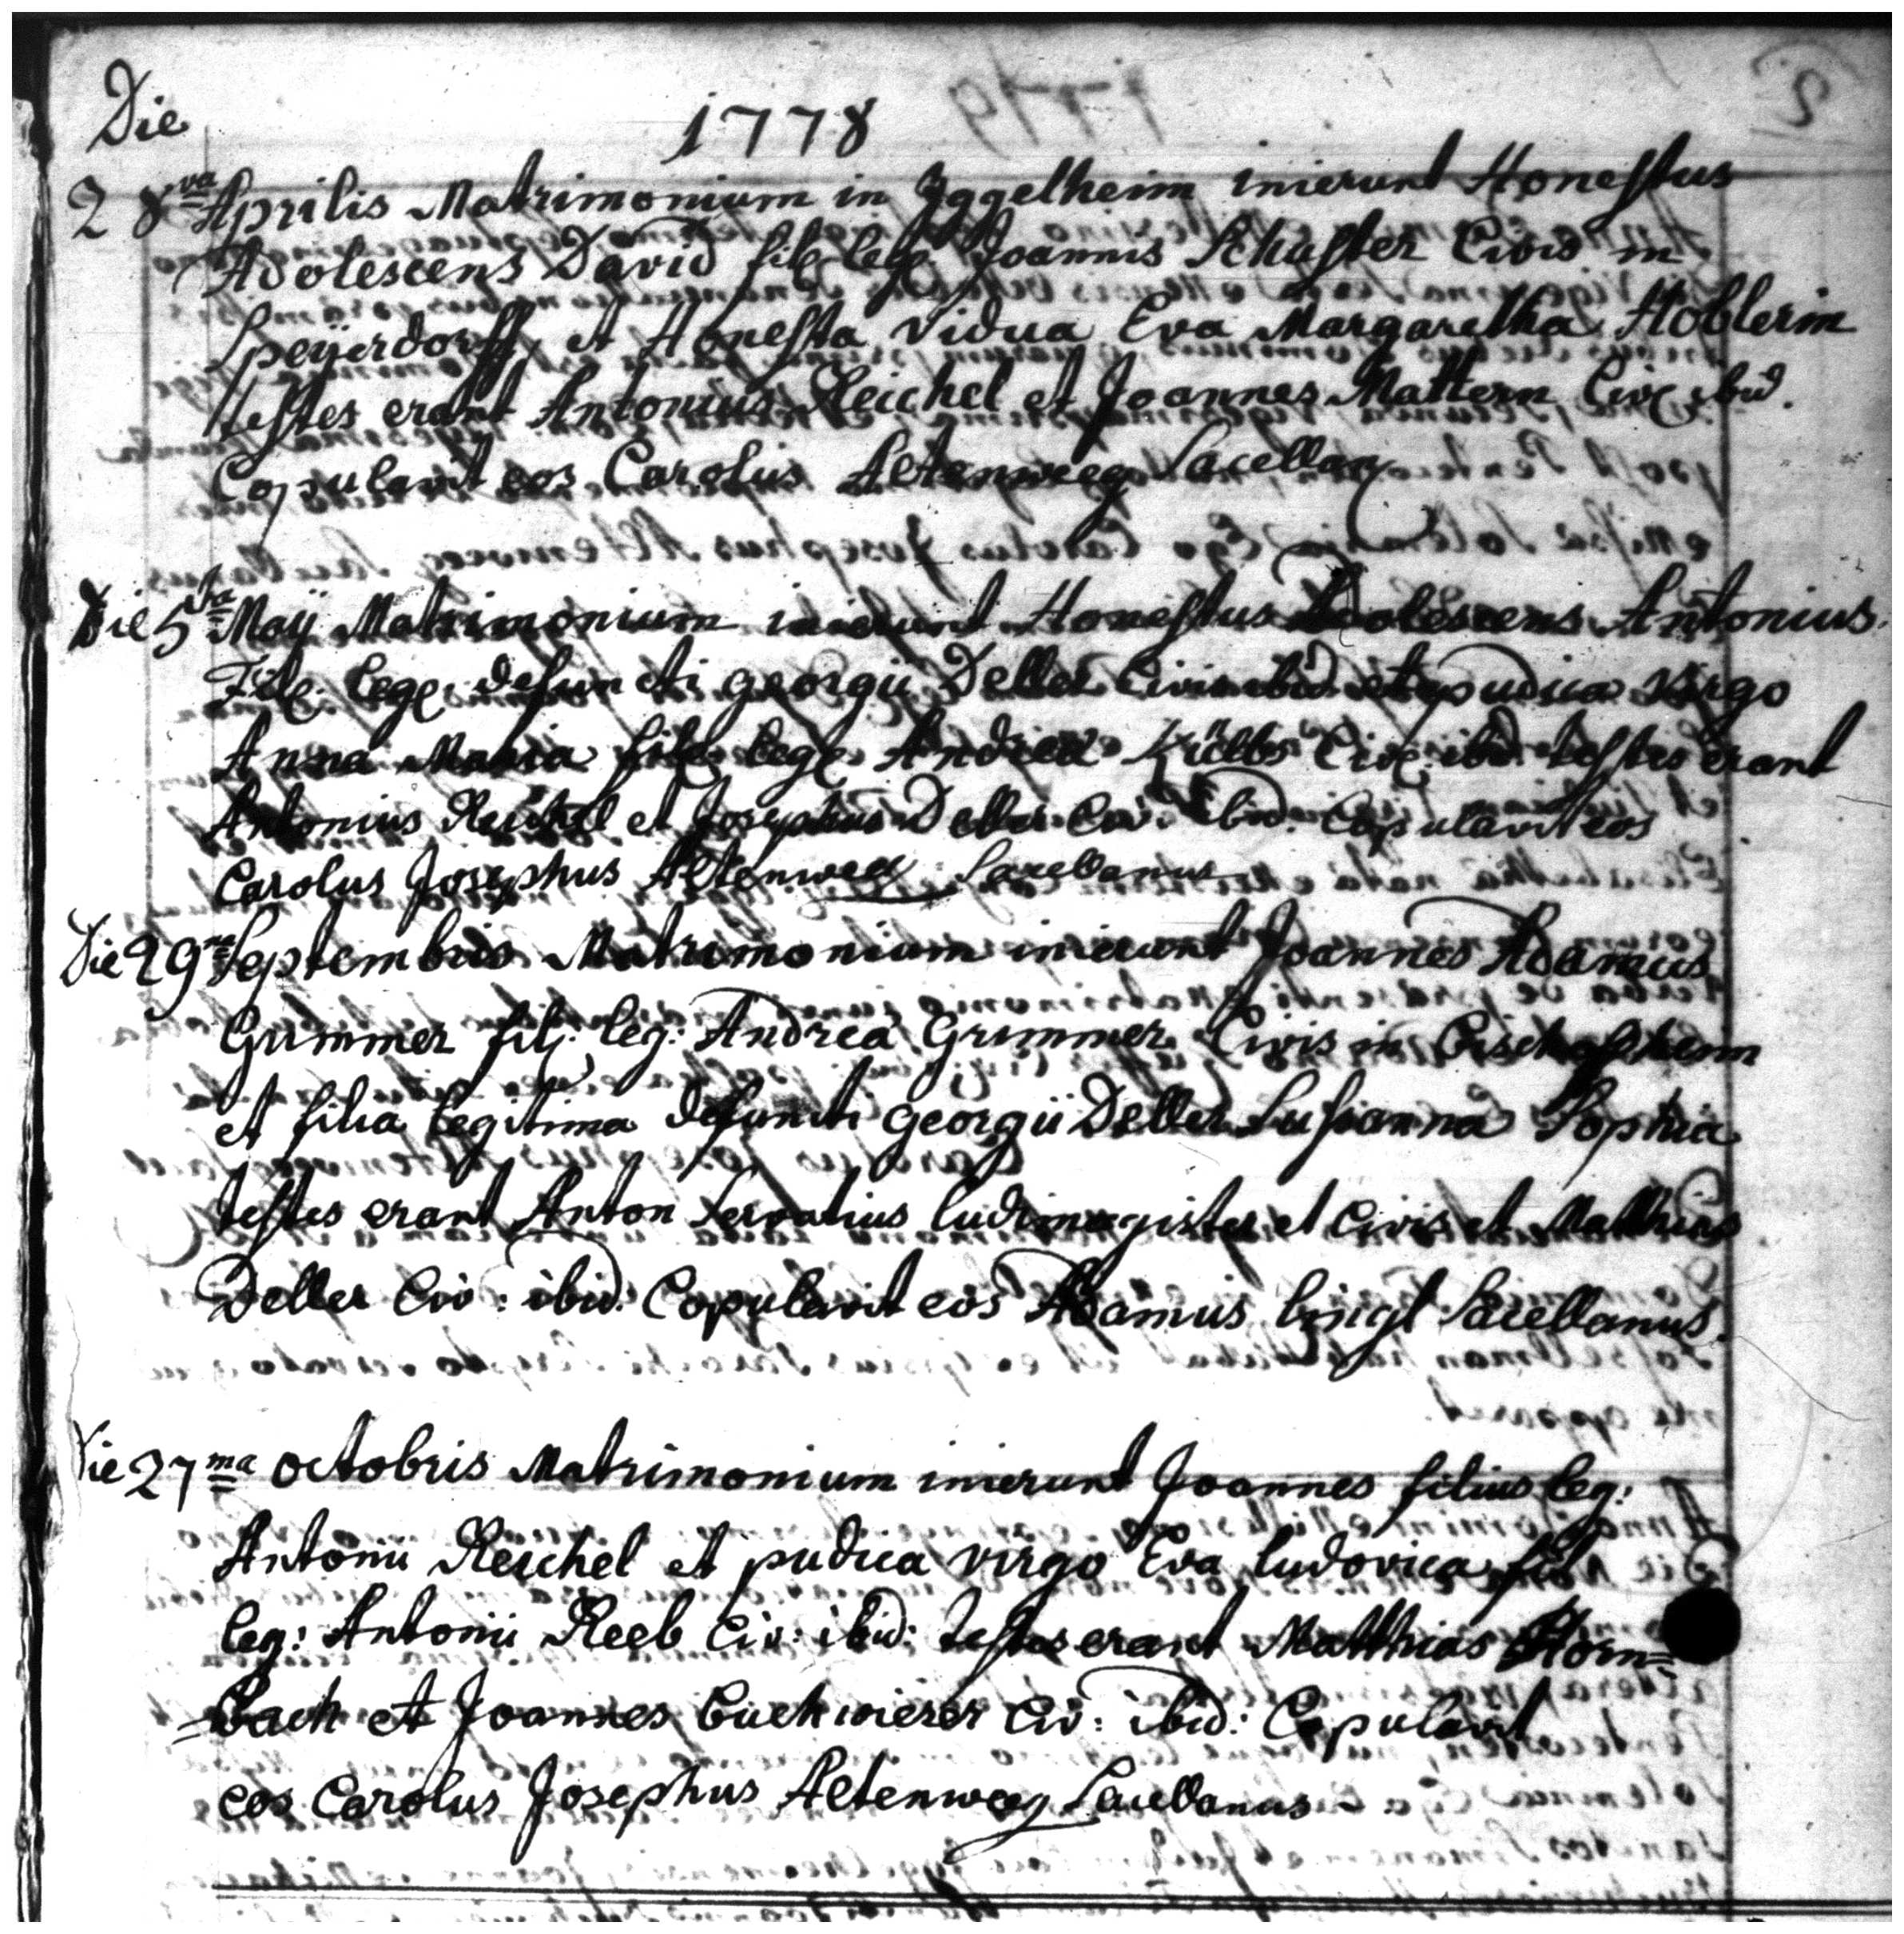 Die
1778
28va Aprilis Matrimonium in Iggelheim inierunt Honestus
Adolescens David fil. leg. Joannis Schuster Civis in
Speÿerdorff, et Honesta Vidua Eva Margaretha Hoblerin
testes erant Antonius Reichel et Joannes Mattern Civ. ibid.
Copulavit eos Carolus Altenweeg Sacellan
Die 5ta Maÿ Matrimonium inierunt Honestus Adolescens Antonius
Fil. leg. defuncti georgii Deller Civis ibid. et pudica virgo
Anna Maria fil. leg. Andrea Külbs Civ. ibid. testes erant
Antonius Reichel et Josephus Deller Civ. ibid. Copulavit eos
Carolus Josephus Altenweeg Sacellanus
Die 29na Septembris Matrimonium inierunt Joannes Adamus
Grimmer fil. leg: Andrea Grimmer Civis in
et filia legitima defuncti georgii Deller Susanna Sophia
testes erant Anton Servatius ludimagister et Civis et Matthias
Deller Civ: ibid. Copulavit eos Adamus Sacellanus.
Die 27ma octobris Matrimonium inierunt Joannes filius leg:
Antonii Reichel et pudica virgo Eva ludovica fil
leg: Antonii Reeb Civ: ibid: testes erant Matthias Horn=
=bach et Joannes Buchwieser Civ: ibid: Copulavit
eos Carolus Josephus Altenweeg Sacellanus